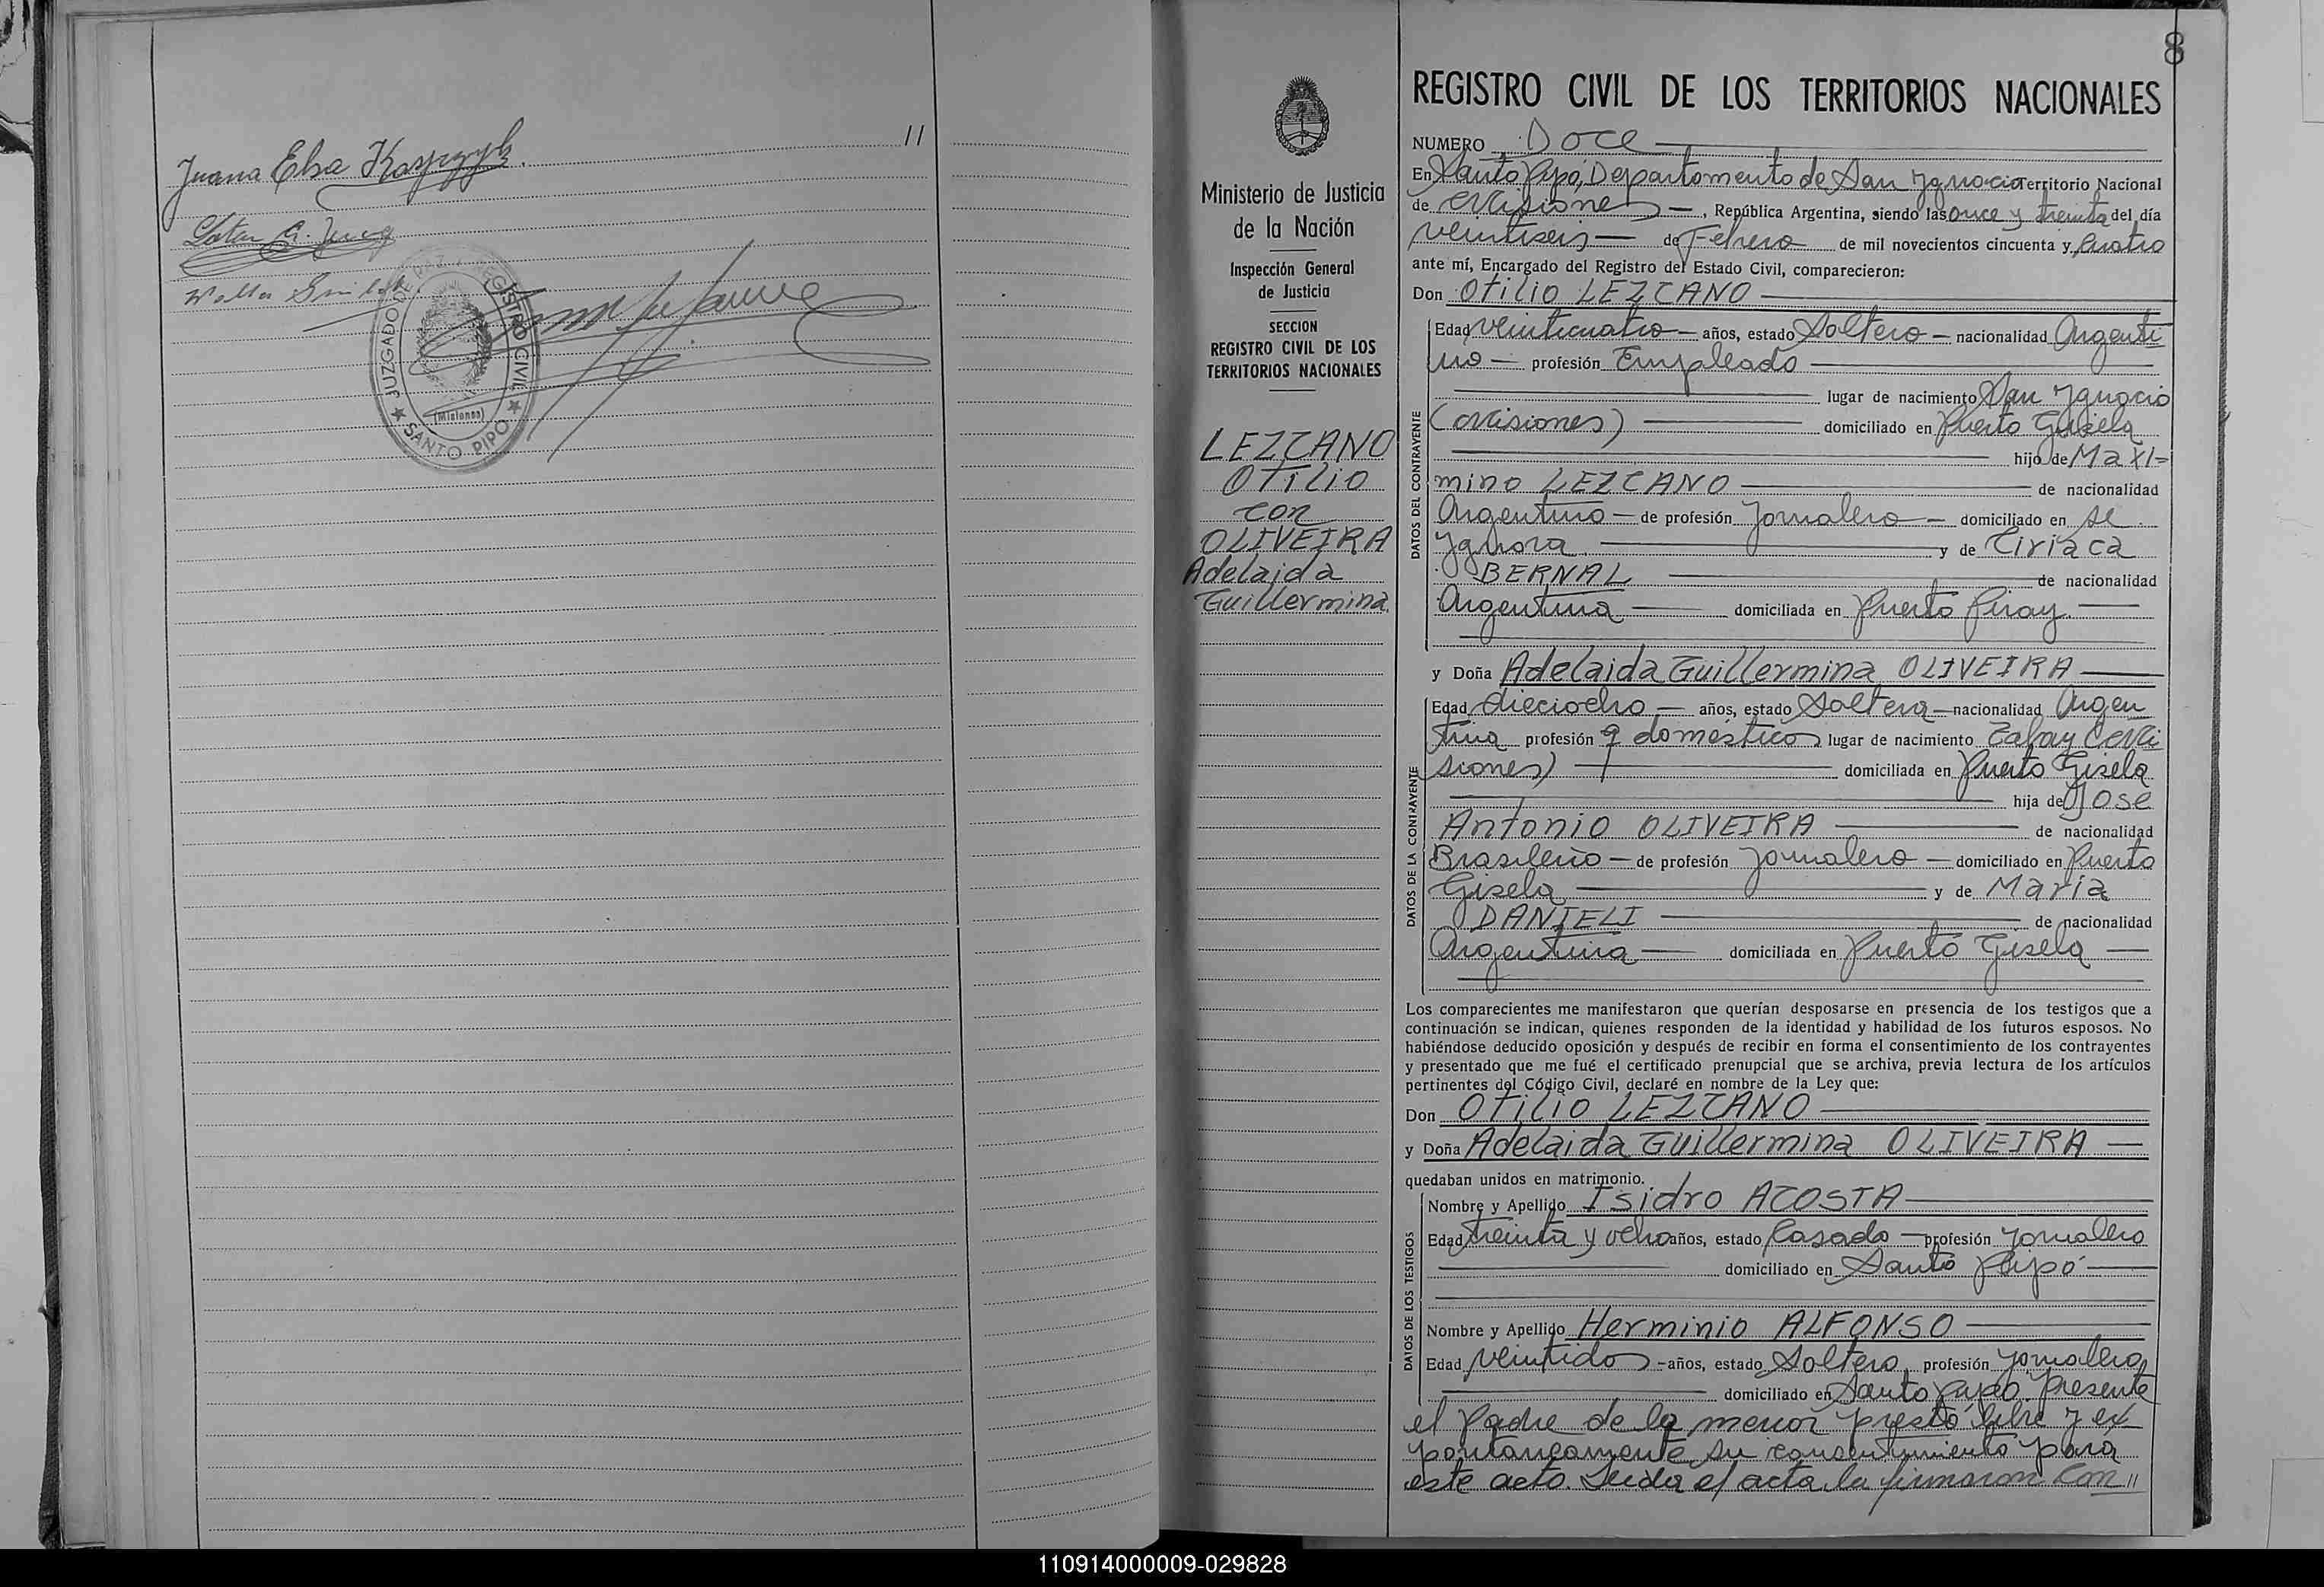 11
Juana Elsa Kasprzyk.
JUZGADO DE PAZ Y REGISTRO CIVIL
(Misiones)
★ SANTO PIPO ★
8
Ministerio de Justicia
de la Nación
Inspección General
de Justicia
SECCION
REGISTRO CIVIL DE LOS
TERRITORIOS NACIONALES
LEZCANO
Otilio
con
OLIVEIRA
Adelaida
Guillermina.
REGISTRO CIVIL DE LOS TERRITORIOS NACIONALES
NUMERO Doce
En Santo Pipó, Departamento de San Ygnacio Territorio Nacional
de Misiones, República Argentina, siendo las once y treinta del día
veintiseis de Febrero de mil novecientos cincuenta y cuatro
ante mí, Encargado del Registro del Estado Civil, comparecieron:
Don Otilio LEZCANO
DATOS DEL CONTRAYENTE
Edad veinticuatro años, estado Soltero nacionalidad Argenti
no profesión Empleado
lugar de nacimiento San Ygnacio
(Misiones) domiciliado en Puerto Gisela
hijo de Maxi=
mino LEZCANO de nacionalidad
Argentino de profesión Jornalero domiciliado en se
Ygnora y de Ciriaca
BERNAL de nacionalidad
Argentina domiciliada en Puerto Piray.
y Doña Adelaida Guillermina OLIVEIRA
DATOS DE LA CONTRAYENTE
Edad dieciocho años, estado Soltera nacionalidad Argen
tina profesión q domésticos lugar de nacimiento Tabay (Mi
siones) domiciliada en Puerto Gisela
hija de José
Antonio OLIVEIRA de nacionalidad
Brasileño de profesión Jornalero domiciliado en Puerto
Gisela y de María
DANIELI de nacionalidad
Argentina domiciliada en Puerto Gisela
Los comparecientes me manifestaron que querían desposarse en presencia de los testigos que a
continuación se indican, quienes responden de la identidad y habilidad de los futuros esposos. No
habiéndose deducido oposición y después de recibir en forma el consentimiento de los contrayentes
y presentado que me fué el certificado prenupcial que se archiva, previa lectura de los artículos
pertinentes del Código Civil, declaré en nombre de la Ley que:
Don Otilio LEZCANO
y Doña Adelaida Guillermina OLIVEIRA
quedaban unidos en matrimonio.
DATOS DE LOS TESTIGOS
Nombre y Apellido Isidro ACOSTA
Edad treinta y ocho años, estado Casado profesión Jornalero
domiciliado en Santo Pipó
Nombre y Apellido Herminio ALFONSO
Edad veintidos años, estado Soltero profesión Jornalero
domiciliado en Santo Pipó. Presente
el padre de la menor prestó libre y ex
pontaneamente su consentimiento para
este acto. Leida el acta la firmaron con 11
110914000009-029828